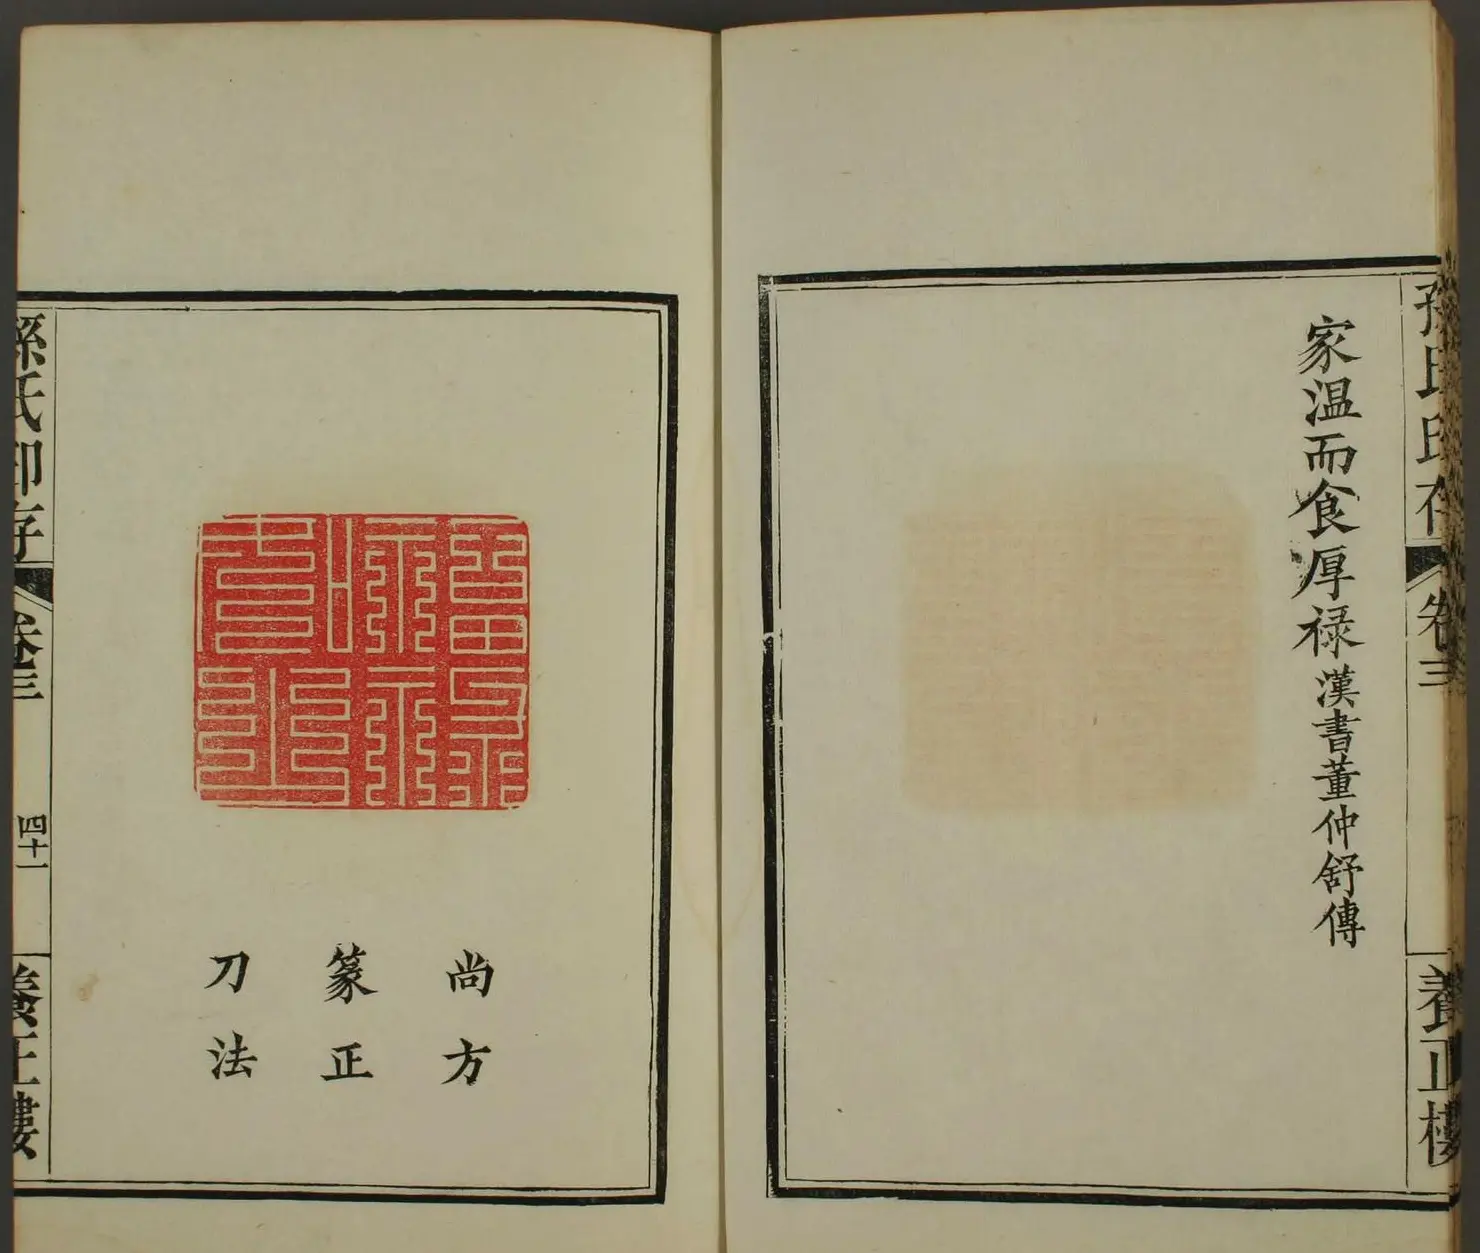 孫氏印存
卷三
養正樓
家温而食厚禄漢書董仲舒傳
尚方
篆正
刀法
孫氏印存
卷三
四十一
養正樓